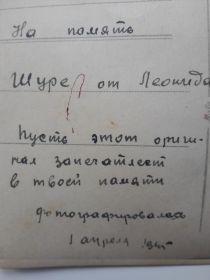 На память
Шуре от Леонида
Пусть этот ориги-
нал запечатлеет
в твоей памяти
фотографировались
1 апреля